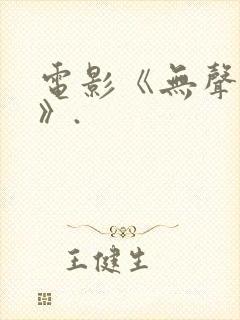 電影《無聲
》.
王健生